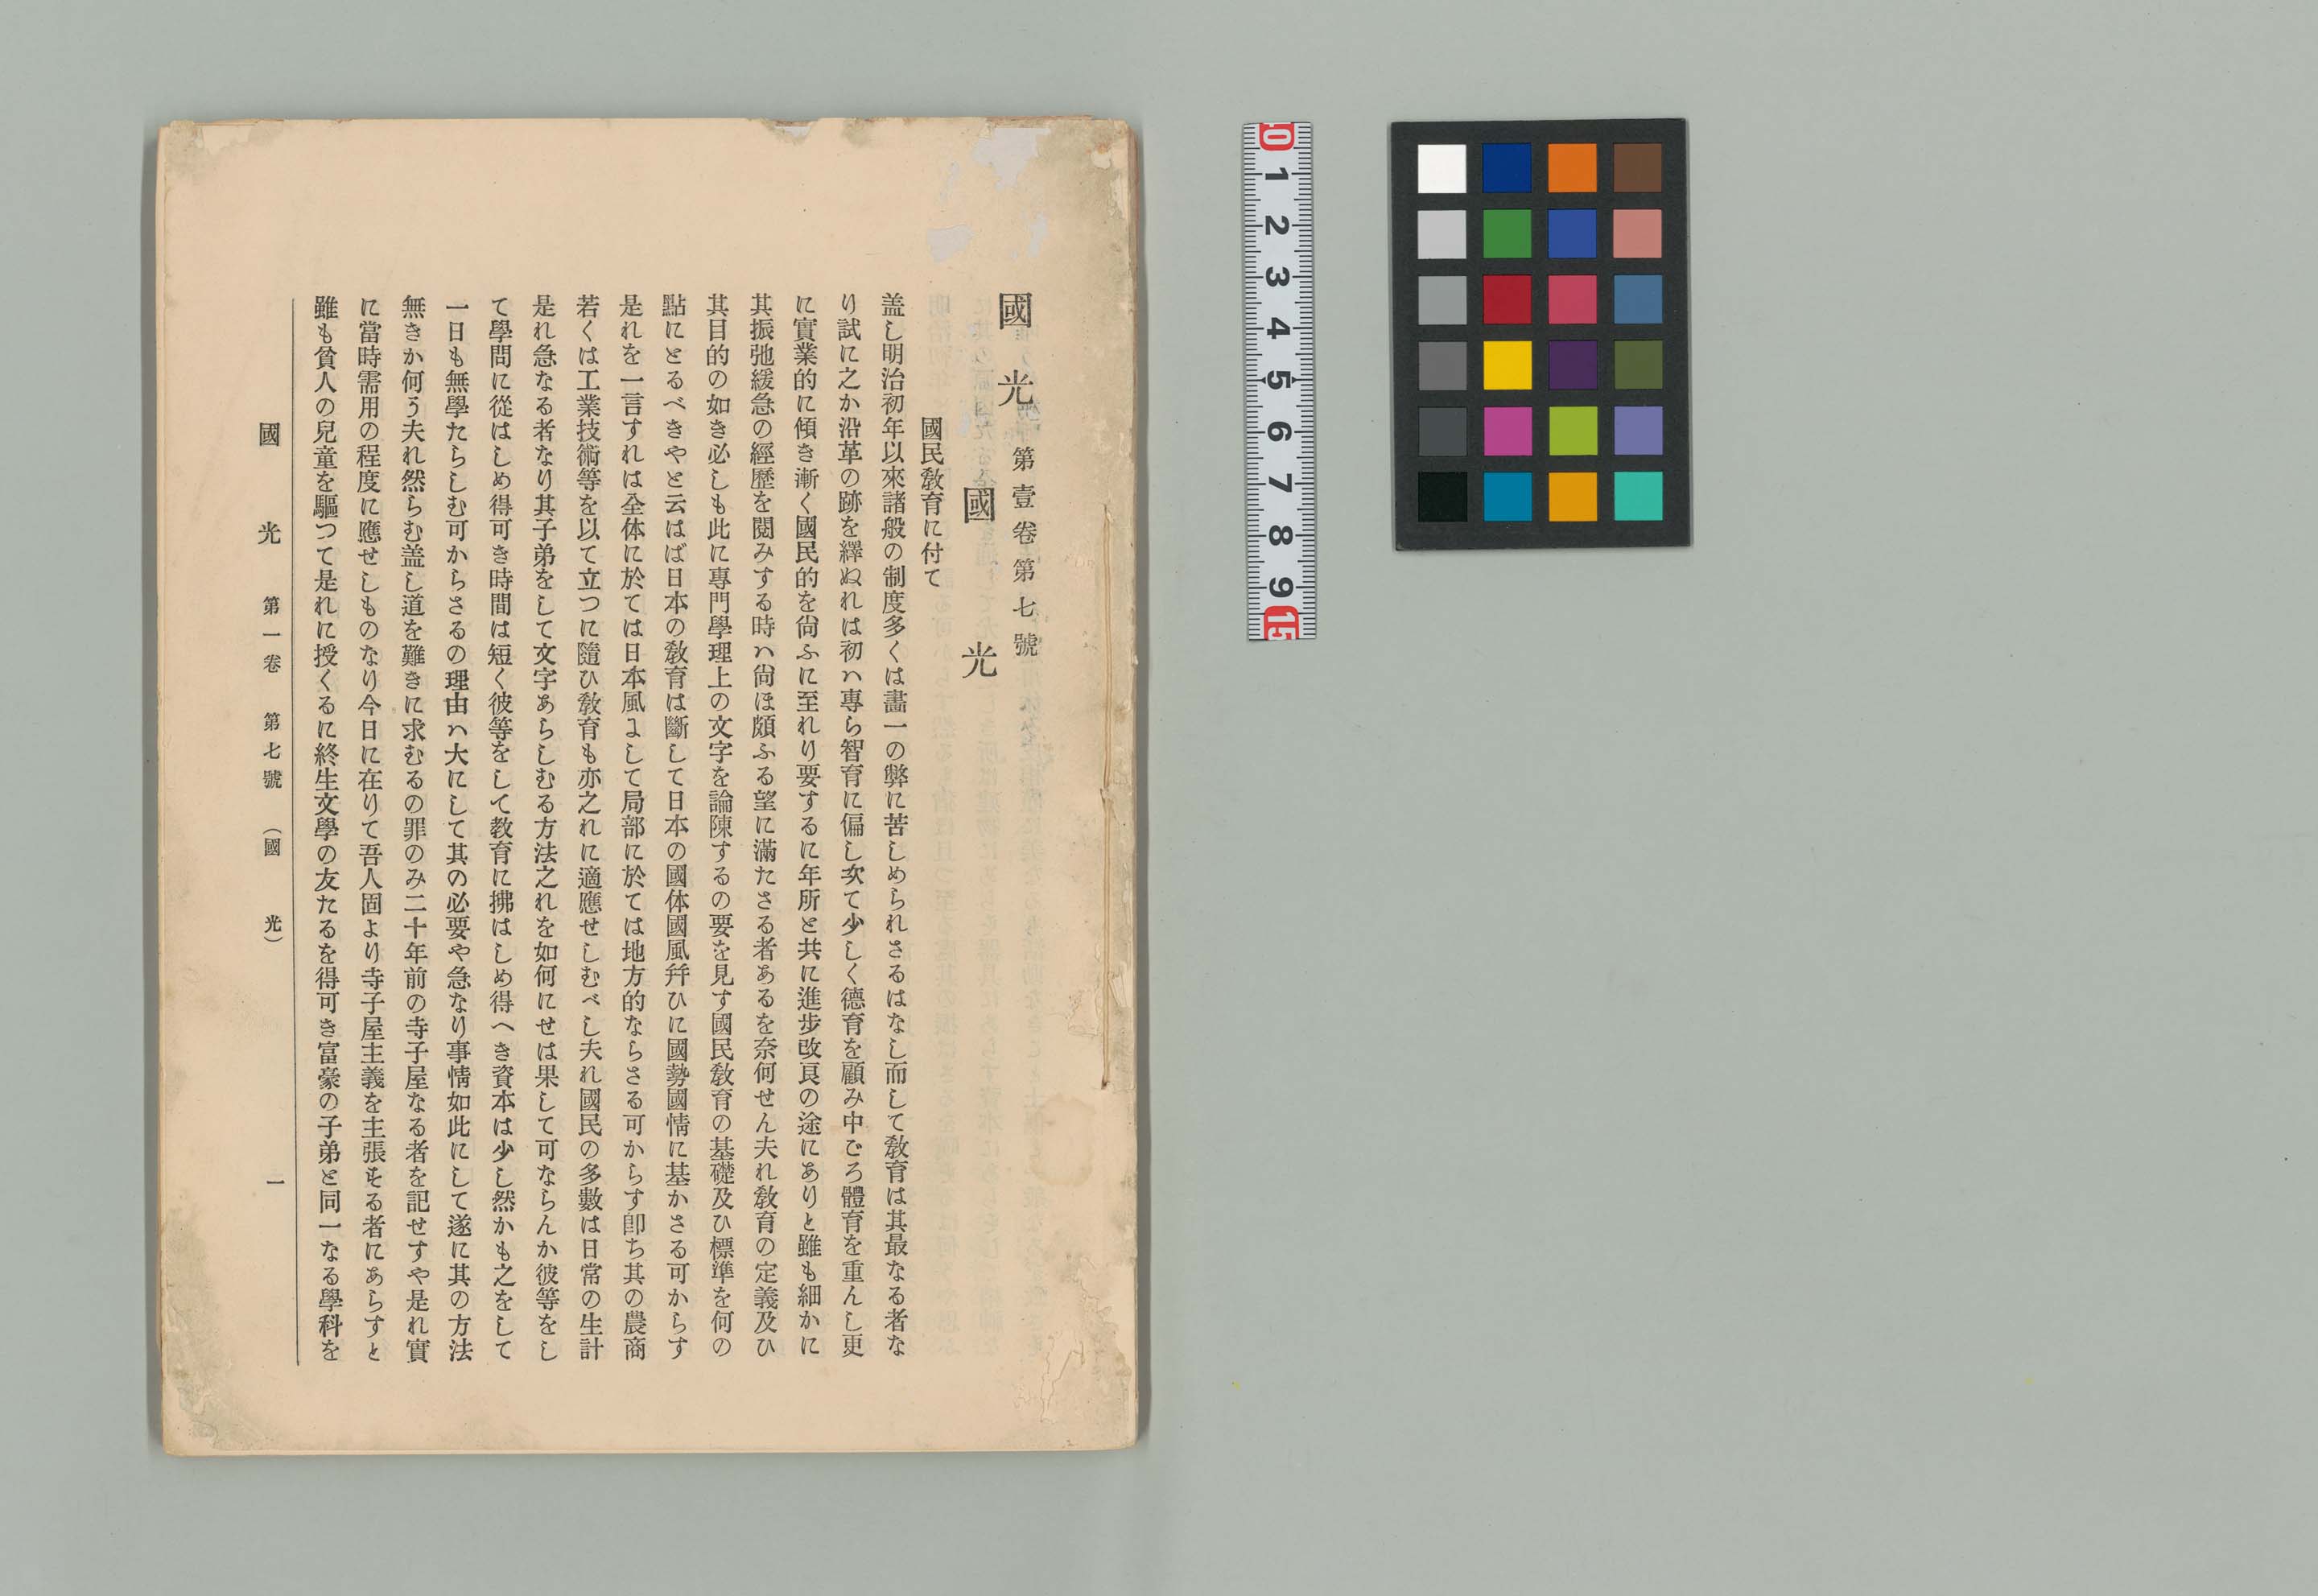 國光 第壹卷第七號
國光
國民教育に付て
盖し明治初年以來諸般の制度多くは畵一の弊に苦しめられさるはなし而して教育は其最なる者な
り試に之か沿革の跡を繹ぬれは初ハ專ら智育に偏し次て少しく德育を顧み中ごろ體育を重んし更
に實業的に傾き漸く國民的を尙ふに至れり要するに年所と共に進步改良の途にありと雖も細かに
其振弛緩急の經歷を閱みする時ハ尙ほ頗ふる望に滿たさる者あるを奈何せん夫れ敎育の定義及ひ
其目的の如き必しも此に專門學理上の文字を論陳するの要を見す國民敎育の基礎及ひ標準を何の
點にとるべきやと云はば日本の敎育は斷して日本の國体國風幷ひに國勢國情に基かさる可からす
是れを一言すれは全体に於ては日本風ㇵして局部に於ては地方的ならさる可からす卽ち其の農商
若くは工業技術等を以て立つに隨ひ敎育も亦之れに適應せしむべし夫れ國民の多數は日常の生計
是れ急なる者なり其子弟をして文字あらしむる方法之れを如何にせは果して可ならんか彼等をし
て學問に從はしめ得可き時間は短く彼等をして敎育に拂はしめ得へき資本は少し然かも之をして
一日も無學たらしむ可からさるの理由ハ大にして其の必要や急なり事情如此にして遂に其の方法
無きか何う夫れ然らむ盖し道を難きに求むるの罪のみ二十年前の寺子屋なる者を記せすや是れ實
に當時需用の程度に應せしものなり今日に在りて吾人固より寺子屋主義を主張する者にあらすと
雖も貧人の兒童を驅つて是れに授くるに終生文學の友たるを得可き富豪の子弟と同一なる學科を
國光 第一卷 第七號 （國光） 一
0 1 2 3 4 5 6 7 8 9 15